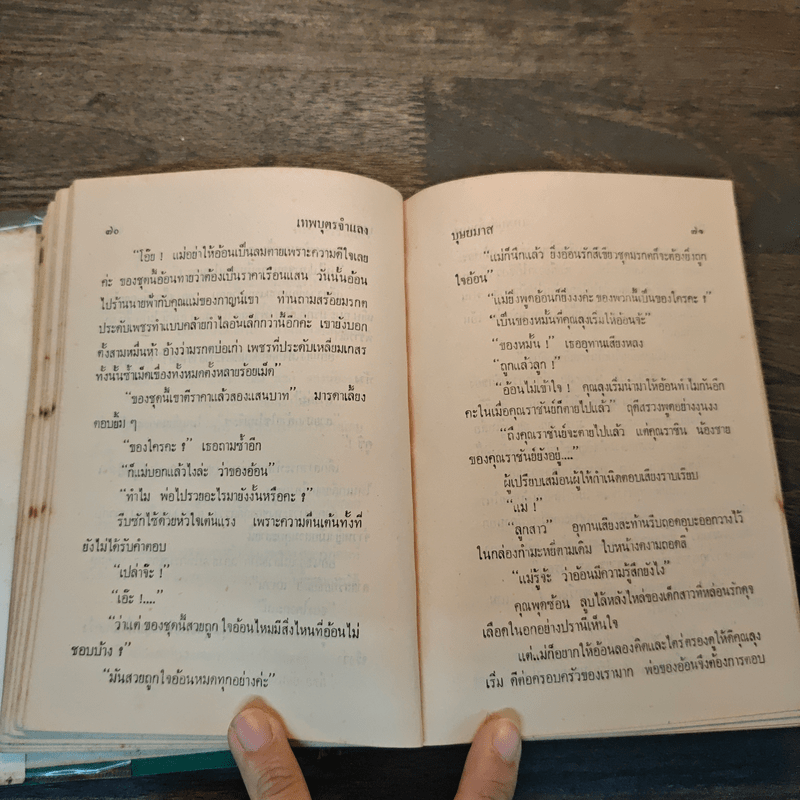 ๗๐ เทพบุตรจำแลง
“โอ๊ย ! แม่อย่าให้อ้อนเป็นลมตายเพราะความดีใจเลย
ค่ะ ของชุดนี้อ้อนทายว่าต้องเป็นราคาเรือนแสน วันนั้นอ้อน
ไปร้านนายฟ้ากับคุณแม่ของกาญน์เขา ท่านถามสร้อยมรกต
ประดับเพชรทำแบบคล้ายกำไลอันเล็กกว่านี้อีกค่ะ เขายังบอก
ตั้งสามหมื่นห้า อ้างว่ามรกตบ่อเก่า เพชรที่ประดับเหลี่ยมเกสร
ทั้งนั้นซ้ำเม็ดเขื่องทั้งหมดตั้งหลายร้อยเม็ด”
“ของชุดนี้เขาตีราคาแล้วสองแสนบาท” มารดาเลี้ยง
ตอบยิ้ม ๆ
“ของใครคะ ?” เธอถามซ้ำอีก
“ก็แม่บอกแล้วไงล่ะ ว่าของอ้อน”
“ทำไม พ่อไปรวยอะไรมายังงั้นหรือคะ ?”
รีบซักไซ้ด้วยหัวใจเต้นแรง เพราะความตื่นเต้นทั้งที่
ยังไม่ได้รับคำตอบ
“เปล่าจ๊ะ !”
“เอ๊ะ !....”
“ว่าแต่ ของชุดนี้สวยถูกใจอ้อนไหมมีสิ่งไหนที่อ้อนไม่
ชอบบ้าง ?”
“มันสวยถูกใจอ้อนหมดทุกอย่างค่ะ”
บุษยมาส ๗๑
“แม่ก็นึกแล้ว ยิ่งอ้อนรักสีเขียวชุดมรกตก็จะต้องยิ่งถูก
ใจอ้อน”
“แม่ยิ่งพูดอ้อนก็ยิ่งงงค่ะ ของพวกนี้เป็นของใครคะ ?”
“เป็นของหมั้นที่คุณลุงเริ่มให้อ้อนจ้ะ”
“ของหมั้น !” เธออุทานเสียงหลง
“ถูกแล้วลูก !”
“อ้อนไม่เข้าใจ ! คุณลุงเริ่มนำมาให้อ้อนทำไมกันอีก
คะในเมื่อคุณราชันย์ก็ตายไปแล้ว” ฤดีสรวงพูดอย่างงุนงง
“ถึงคุณราชันย์จะตายไปแล้ว แต่คุณราชิน น้องชาย
ของคุณราชันย์ยังอยู่....”
ผู้เปรียบเสมือนผู้ให้กำเนิดตอบเสียงราบเรียบ
“แม่ !”
“ลูกสาว” อุทานเสียงสะท้านรีบถอดอุบะออกวางไว้
ในกล่องกำมะหยี่ตามเดิม ใบหน้างดงามถอดสี
“แม่รู้จ้ะ ว่าอ้อนมีความรู้สึกยังไง”
คุณพุดซ้อน ลูบไล้หลังไหล่ของเด็กสาวที่หล่อนรักดุจ
เลือดในอกอย่างปรานีเห็นใจ
แต่แม่ก็อยากให้อ้อนลองคิดและใคร่ครวญดูให้ดีคุณลุง
เริ่ม ดีต่อครอบครัวของเรามาก พ่อของอ้อนจึงต้องการตอบ